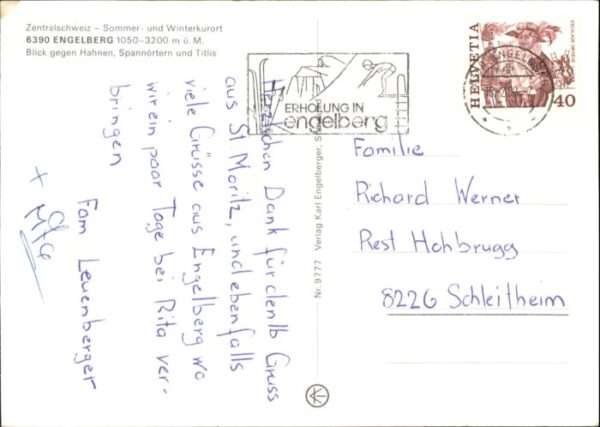 Zentralschweiz – Sommer- und Winterkurort
6390 ENGELBERG 1050–3200 m ü. M.
Blick gegen Hahnen, Spannörtern und Titlis
Herzlichen Dank für den lb Gruss
aus St Moritz, und ebenfalls
viele Grüsse aus Engelberg wo
wir ein paar Tage bei Rita ver-
bringen
Fam Leuenberger
+
Nr. 9777 Verlag Karl Engelberger,
ERHOLUNG IN
engelberg
HELVETIA
40
Familie
Richard Werner
Rest Hohbrugg
8226 Schleitheim